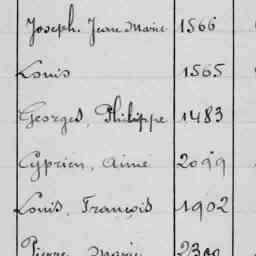 Joseph, Jean Marie 1566
Louis 1565
Georges, Philippe 1483
Cyprien, Aimé 2099
Louis, François 1902
Pierre, Marie 2300